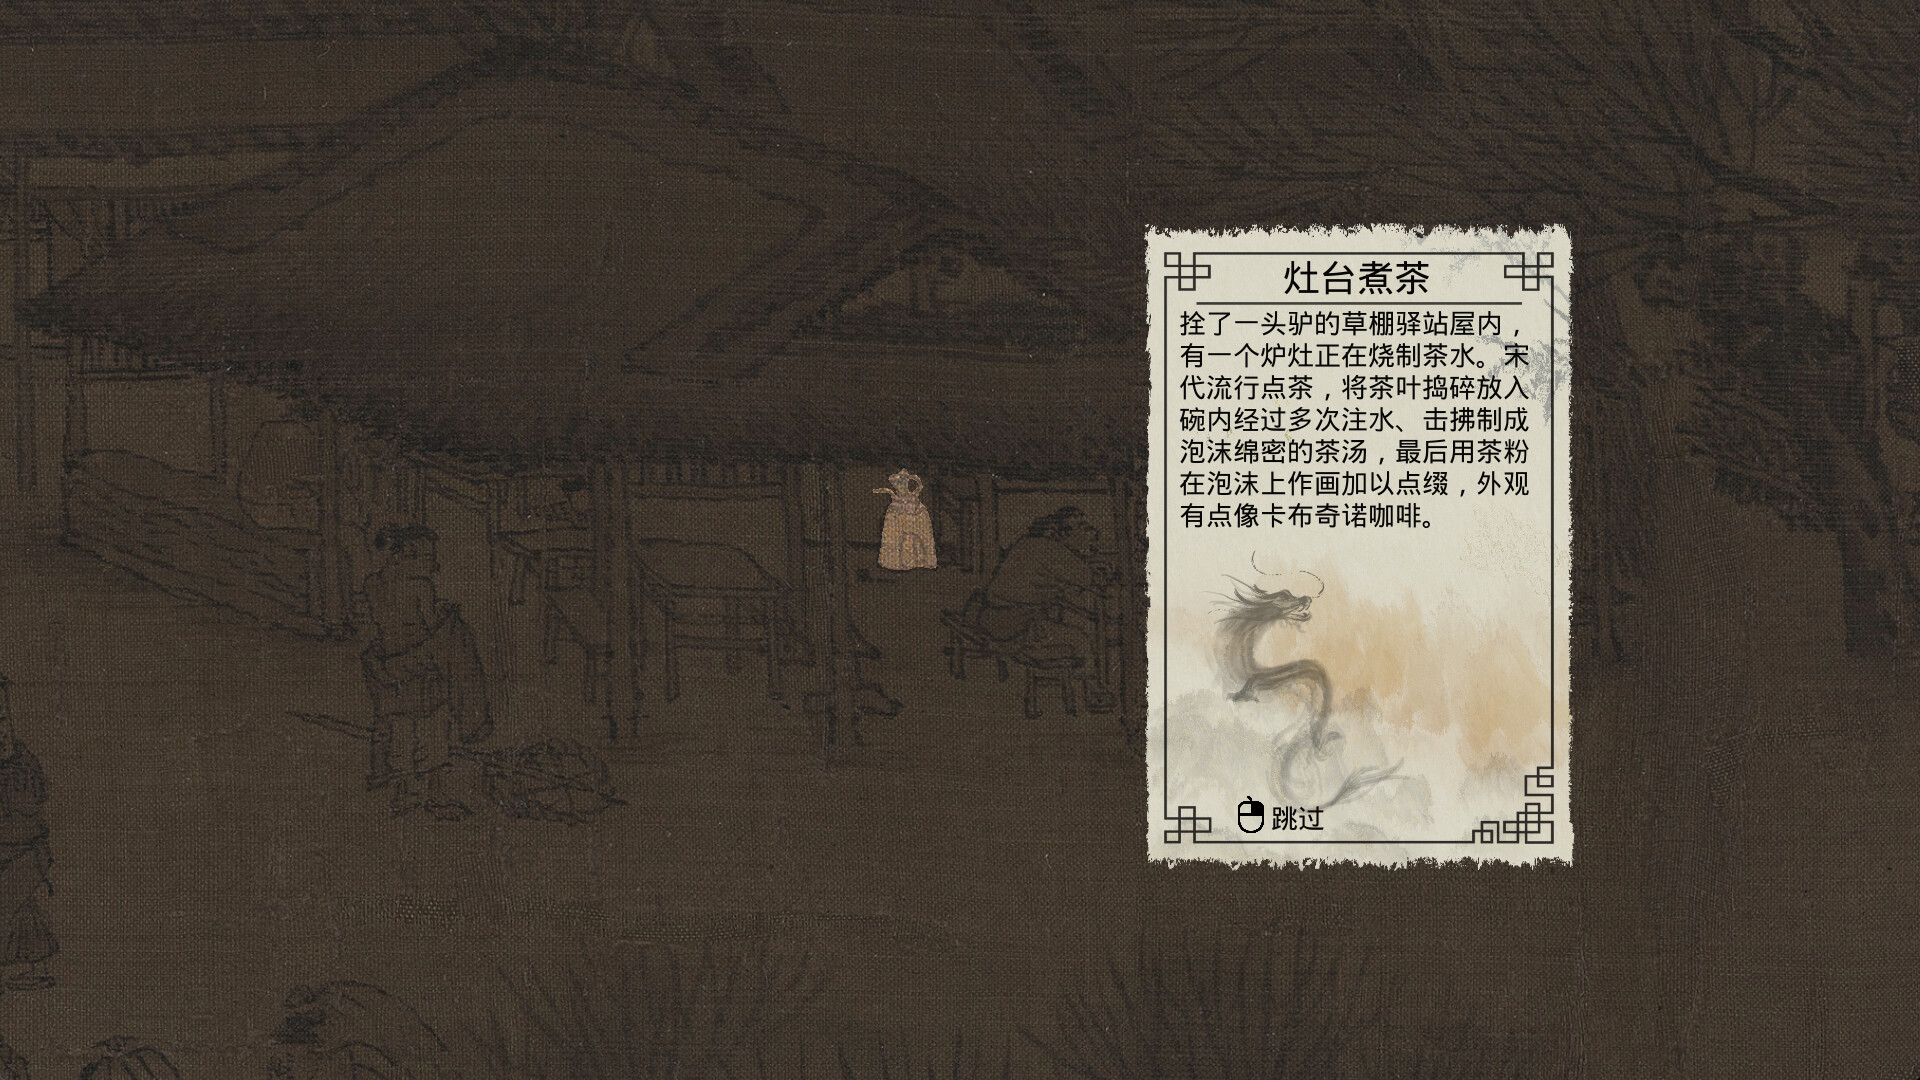 灶台煮茶
拴了一头驴的草棚驿站屋内，
有一个炉灶正在烧制茶水。宋
代流行点茶，将茶叶捣碎放入
碗内经过多次注水、击拂制成
泡沫绵密的茶汤，最后用茶粉
在泡沫上作画加以点缀，外观
有点像卡布奇诺咖啡。
跳过